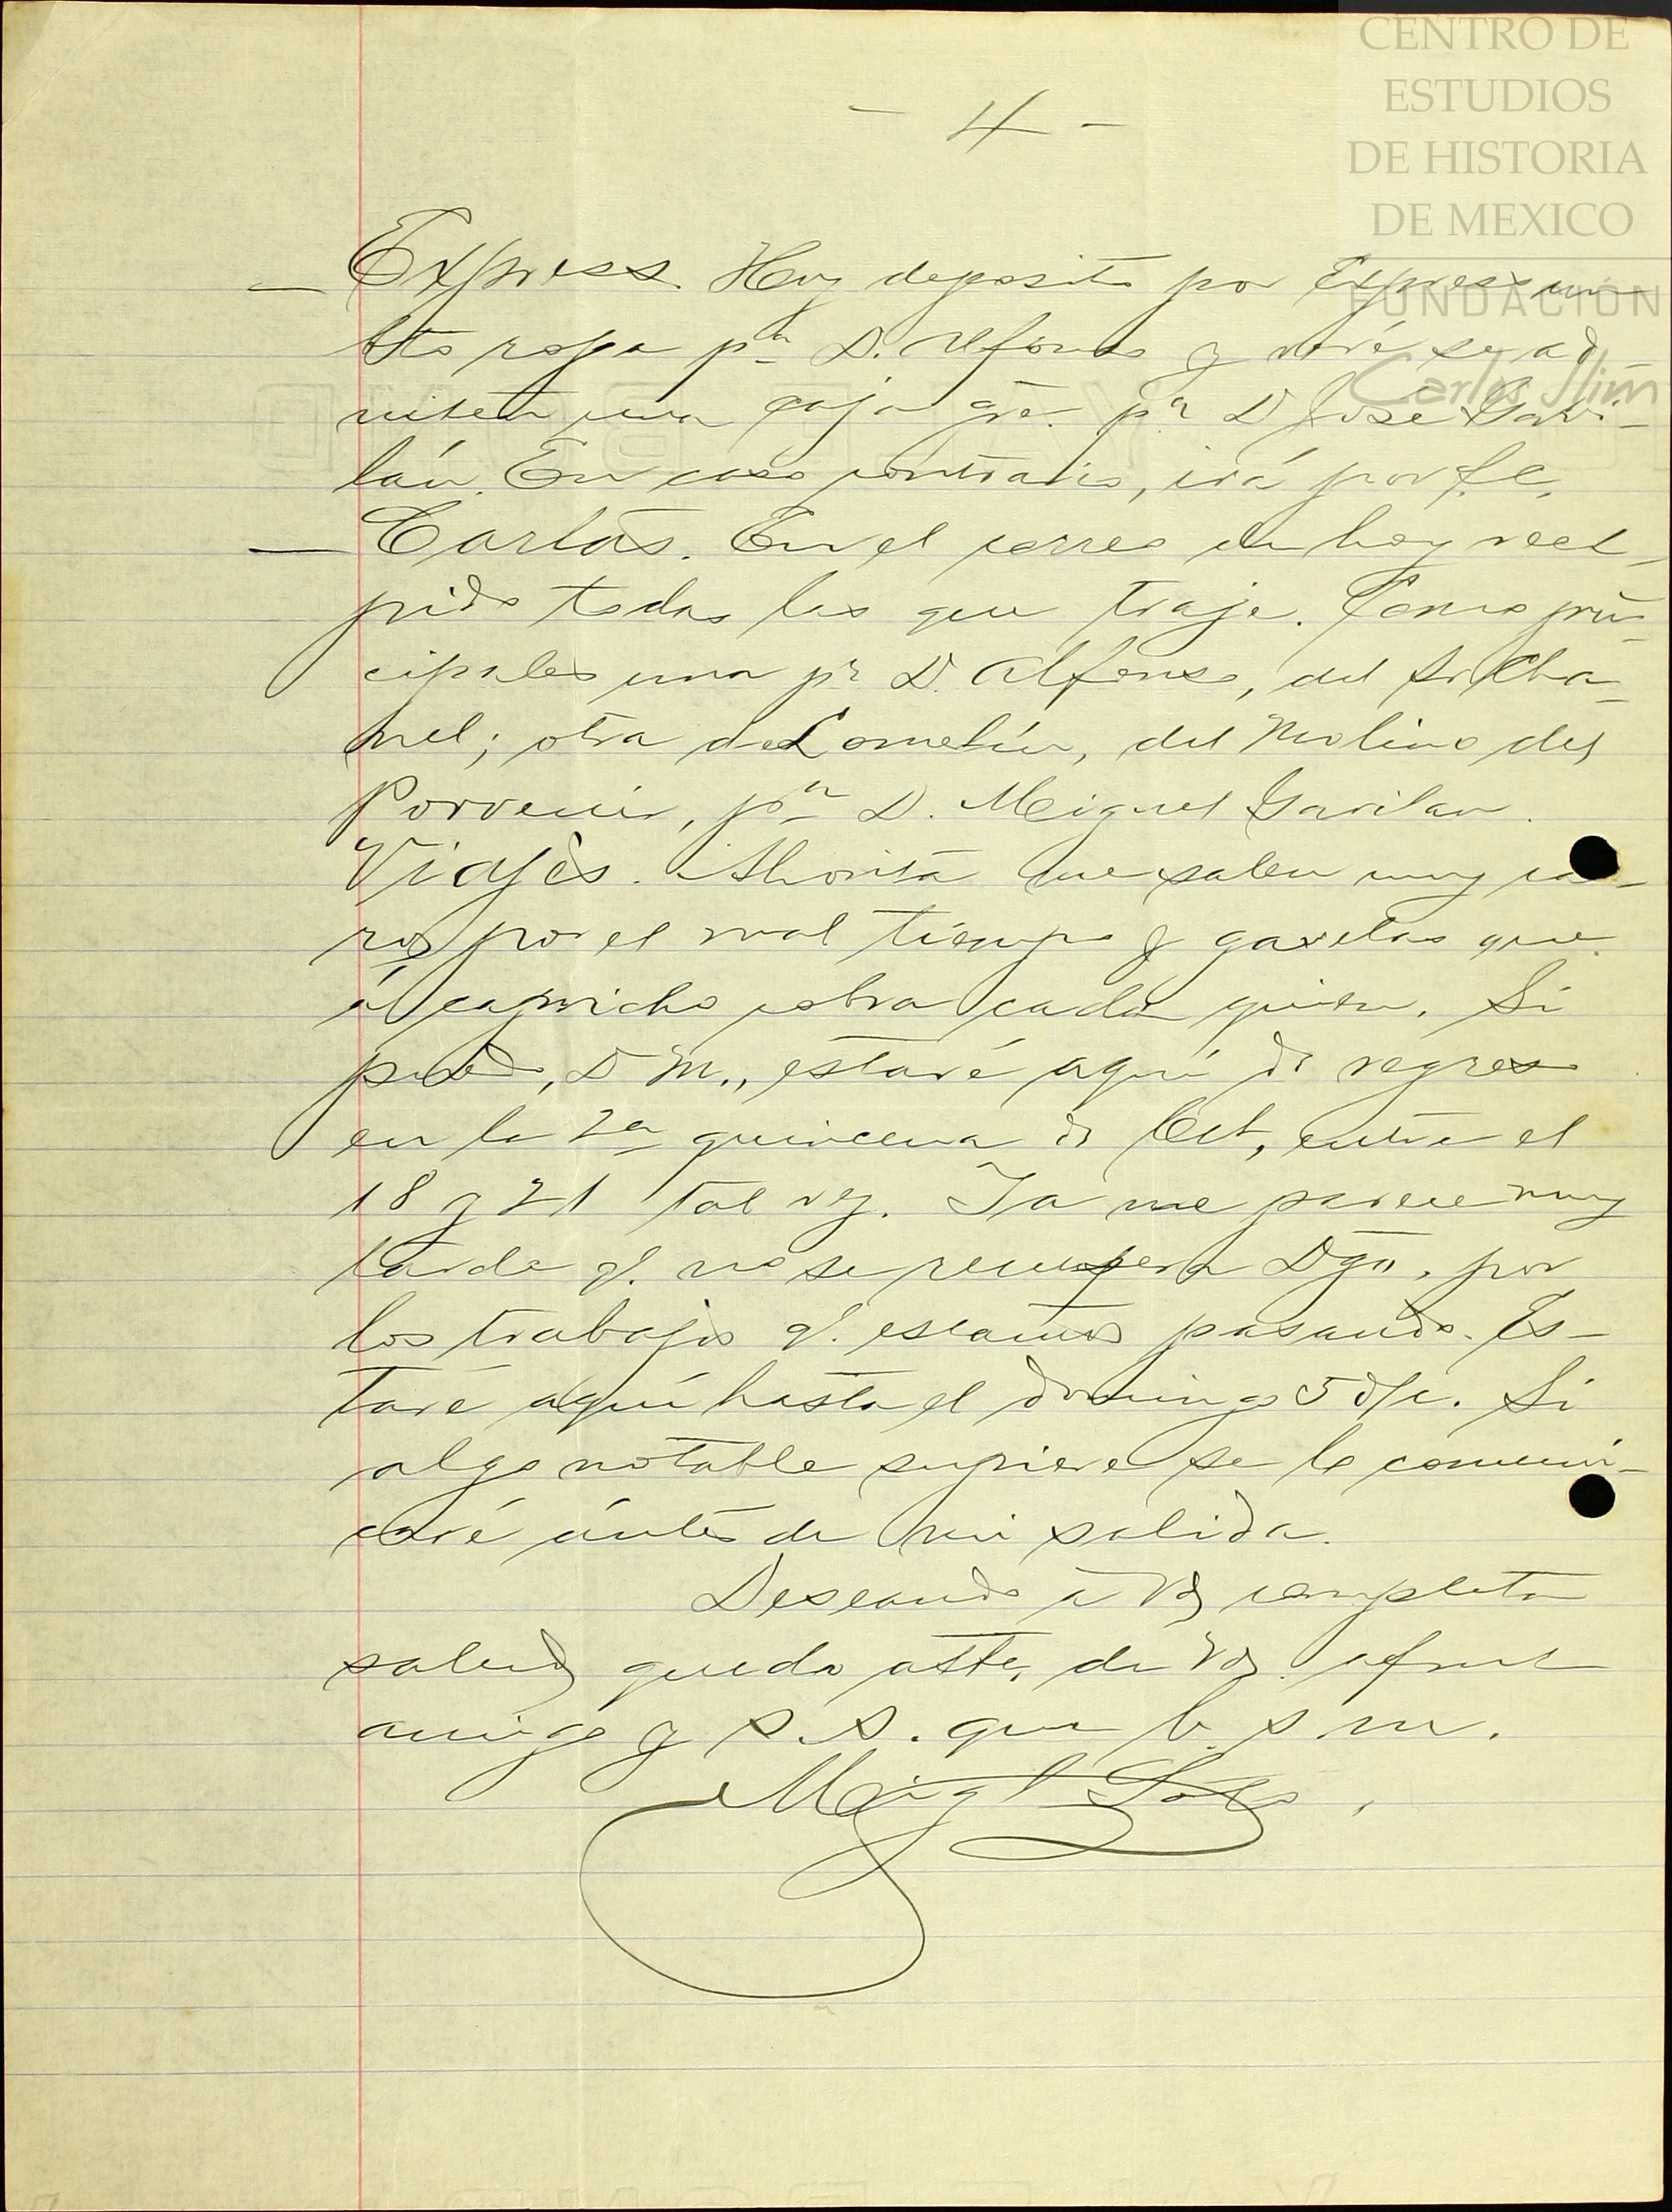 CENTRO DE
ESTUDIOS
DE HISTORIA
DE MEXICO
FUNDACIÓN
Carlos Slim
- 4 -
— Express. Hoy deposito por Express un
bto ropa pª D. Alfonso y veré se ad
miten una caja gde. pª D José Gavi-
lán. En caso contrario, irá por f.c.
— Cartas. En el correo de hoy
pido todas las que traje. Como prin-
cipales una pª D. Alfonso, del Sr Cha-
nel; otra de Lometín, del Molino del
Porvenir, pª D. Miguel Gavilan.
Viajes. Ahorita me salen muy ca-
ros por el mal tiempo y gavelas que
al capricho cobra cada quien. Si
puedo, D M., estaré aquí de regreso
en la 2ª quincena de Oct, entre el
18 y 21 tal vez. Ya me parece muy
tarde q. no se recupera Dgo. por
los trabajos q. estamos pasando. Es-
taré aquí hasta el domingo 5 d/c. Si
algo notable supiere se lo comuni-
caré ántes de mi salida.
Deseando á Vd completa
salud quedo atte. de Vd. afmo
amigo y s.s. que b. s m.
Migl